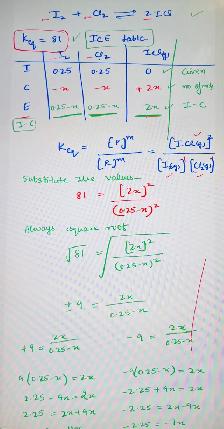 I₂ + Cl₂ ⇌ 2 ICl
Keq = 81 ICE table
I₂ Cl₂ ICl(g)
I 0.25 0.25 0 Given
C -x -x + 2x
E 0.25-x 0.25-x 2x I-C
I-C
Keq = [P]ᵐ / [R]ᵐ = [ICl(g)]² / [I₂(g)] [Cl₂(g)]
Substitute the values
81 = [2x]² / (0.25-x)²
Always square root
√81 = √[2x]² / (0.25-x)²
±9 = 2x / 0.25-x
+9 = 2x / 0.25-x -9 = 2x / 0.25-x
9(0.25-x) = 2x -9(0.25-x) = 2x
2.25 - 9x = 2x -2.25 + 9x = 2x
2.25 = 2x+9x -2.25 = 2x-9x
-2.25 = -7x